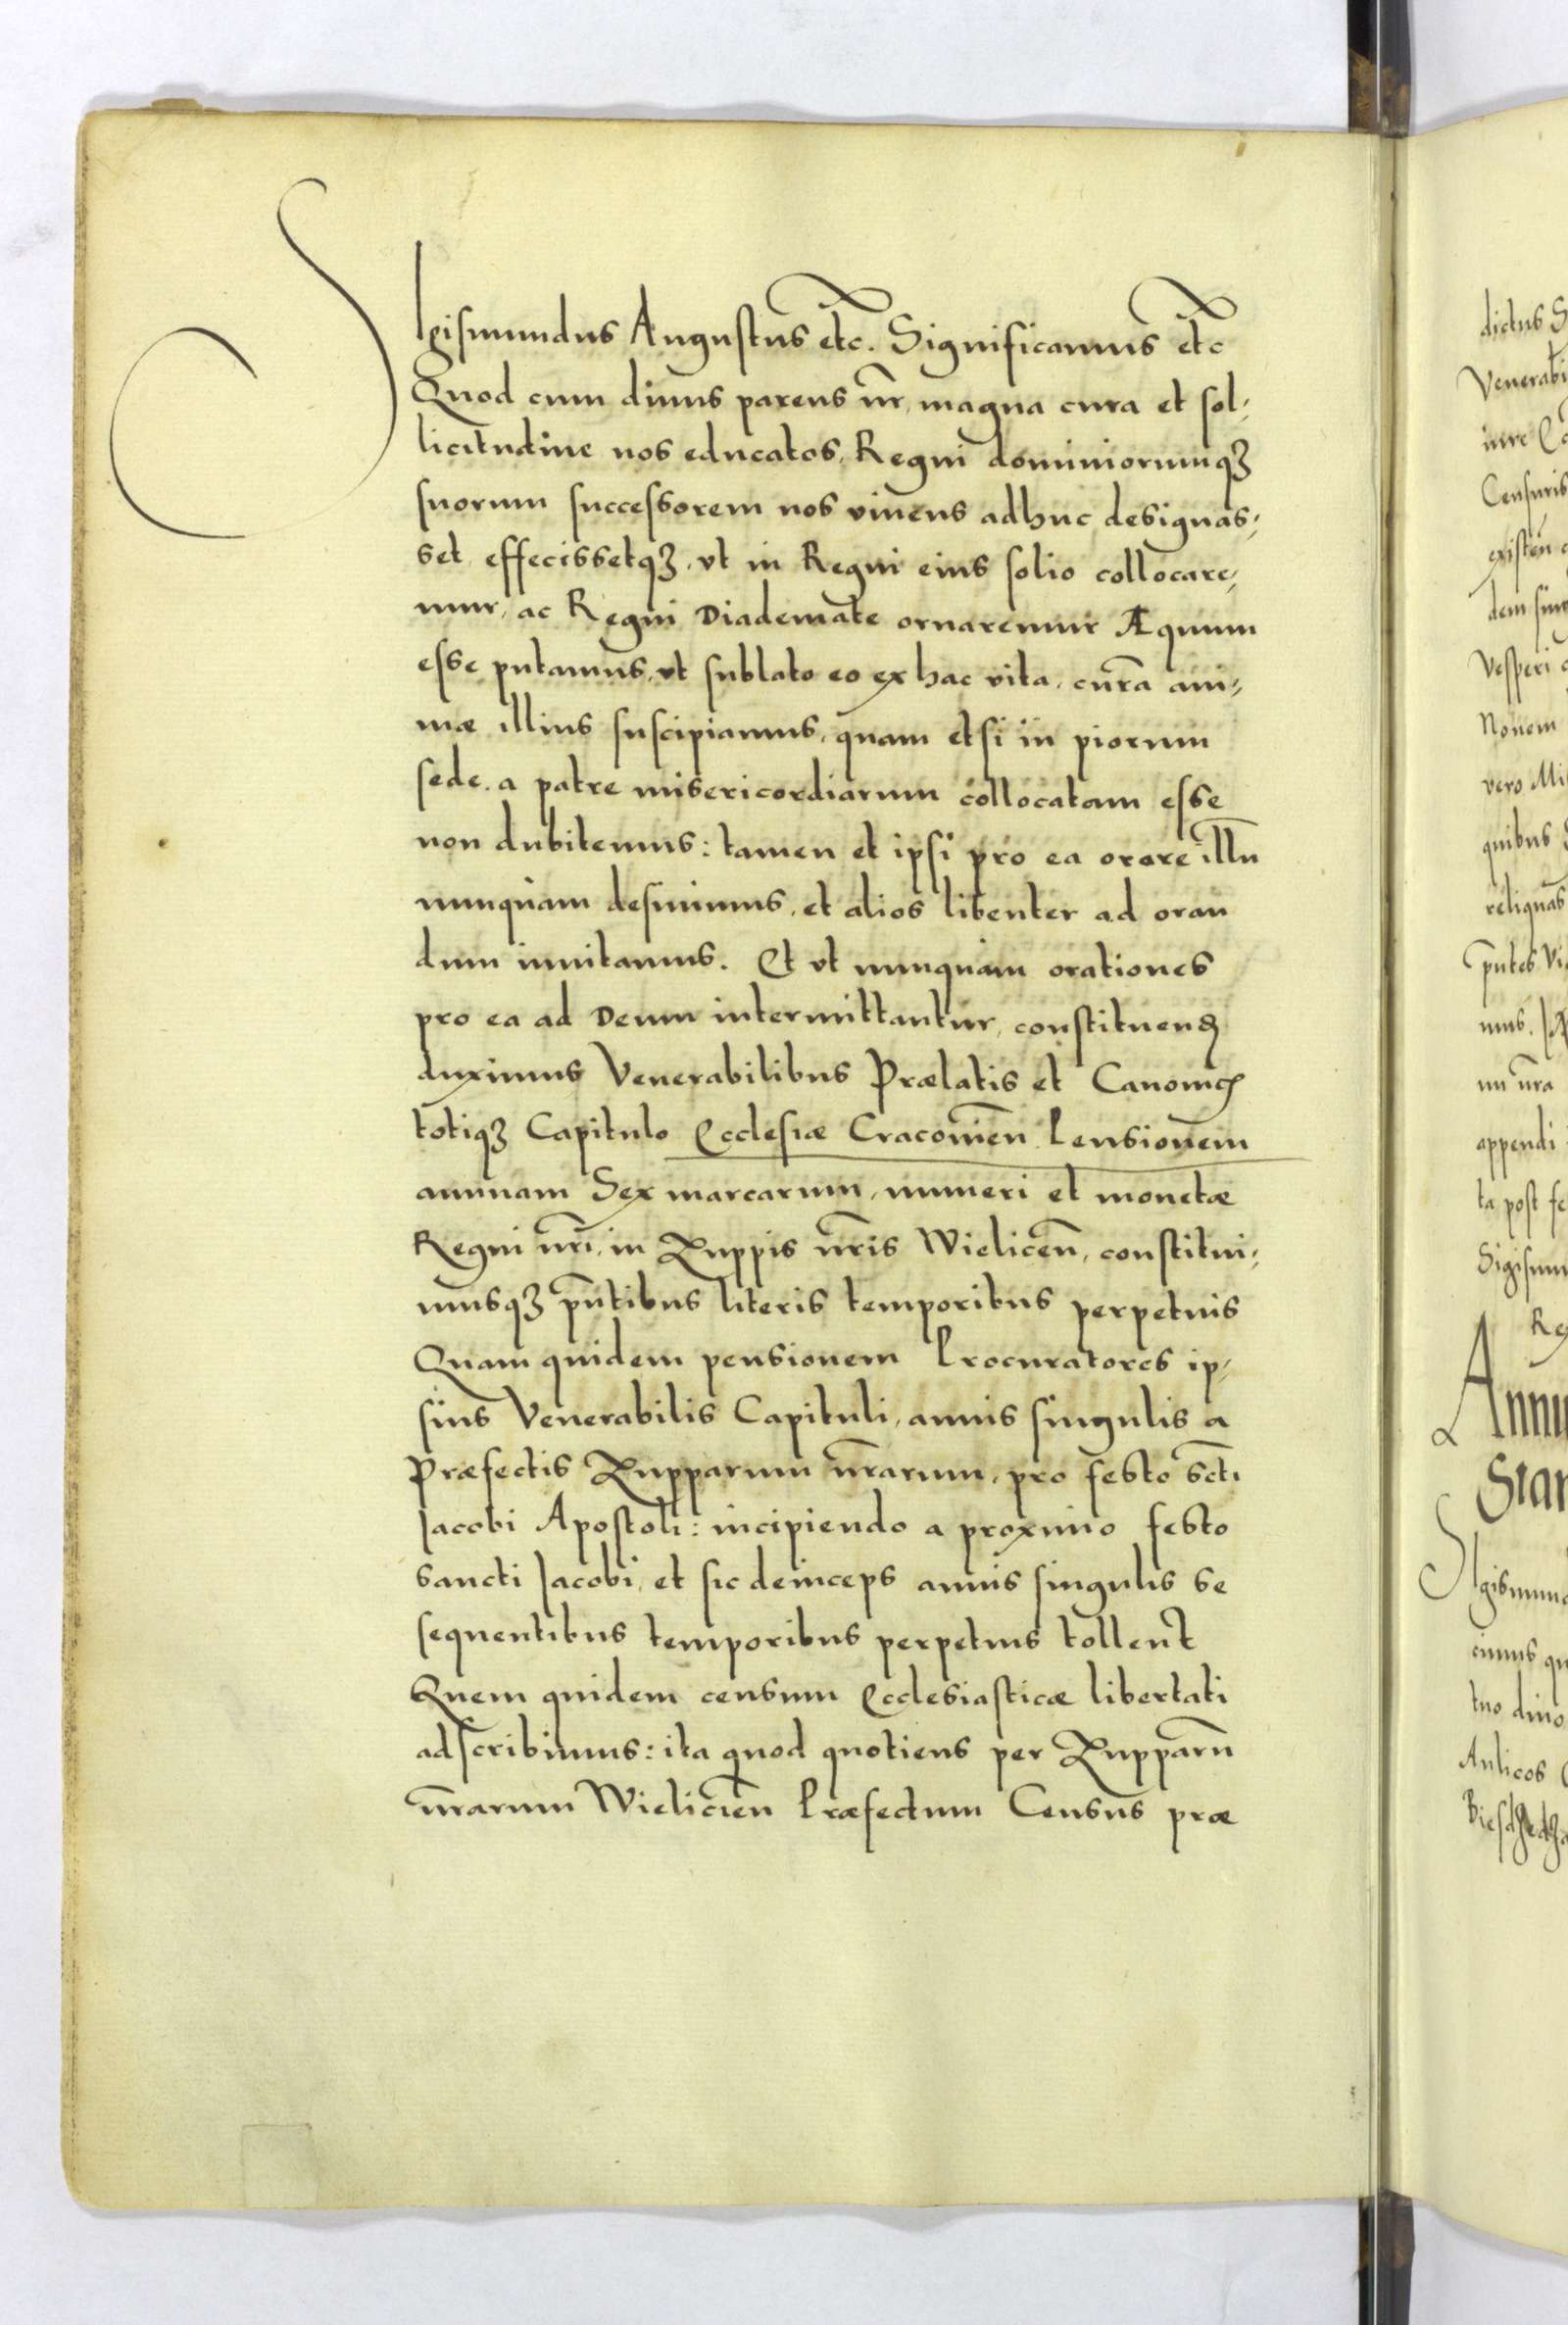 SIgismundus Augustus etc. Significamus etc
Quod cum diuus parens nr̄, magna cura et sol-
licitudine nos educatos, Regni dominiorumq3
suorum successorem nos viuens adhuc designas-
set effecissetq3, vt in Regni eius solio collocare-
mur, ac Regni Diademate ornaremur Æquum
esse putamus, vt sublato eo ex hac vita, curā ani-
mæ illius suscipiamus, quam etsi in piorum
sede, a patre misericordiarum collocatam esse
non dubitemus: tamen et ipsi pro ea orare illū
nunquam desinimus, et alios libenter ad oran
dum inuitamus. Et vt nunquam orationes
pro ea ad Deum intermittantur, constituend
duximus Venerabilibus Prælatis et Canonicꝭ
totiq3 Capitulo Ecclesiæ Cracovien̄ Pensionem
annuam Sex marcarum, numeri et monetæ
Regni nr̄i, in Zuppis nr̄is Wielicen̄, constitui-
musq3 pn̄tibus literis temporibus perpetuis
Quam quidem pensionem Procuratores ip-
sius Venerabilis Capituli, annis singulis a
Præfectis Zupparum nr̄arum, pro festo sct̄i
Jacobi Apostoli: incipiendo a proximo festo
sancti Jacobi, et sic deinceps annis singulis se
sequentibus temporibus perpetuis tollent
Quem quidem censum Ecclesiasticæ libertati
adscribimus: ita quod quotiens per Zupparū
nr̄arum Wielicien̄ Præfectum Census præ
dictus S
Venerabi
iure Co
Censuris
existen̄
dem sing
Vesperi
Nonem
vero Mi
quibus
reliquas
pn̄tes Vi
mus.
nu nr̄a
appendi
ta post fe
Sigism
Re
Annu
Stan
SIgismund
cimus qu
tuo diuo
Aulicos